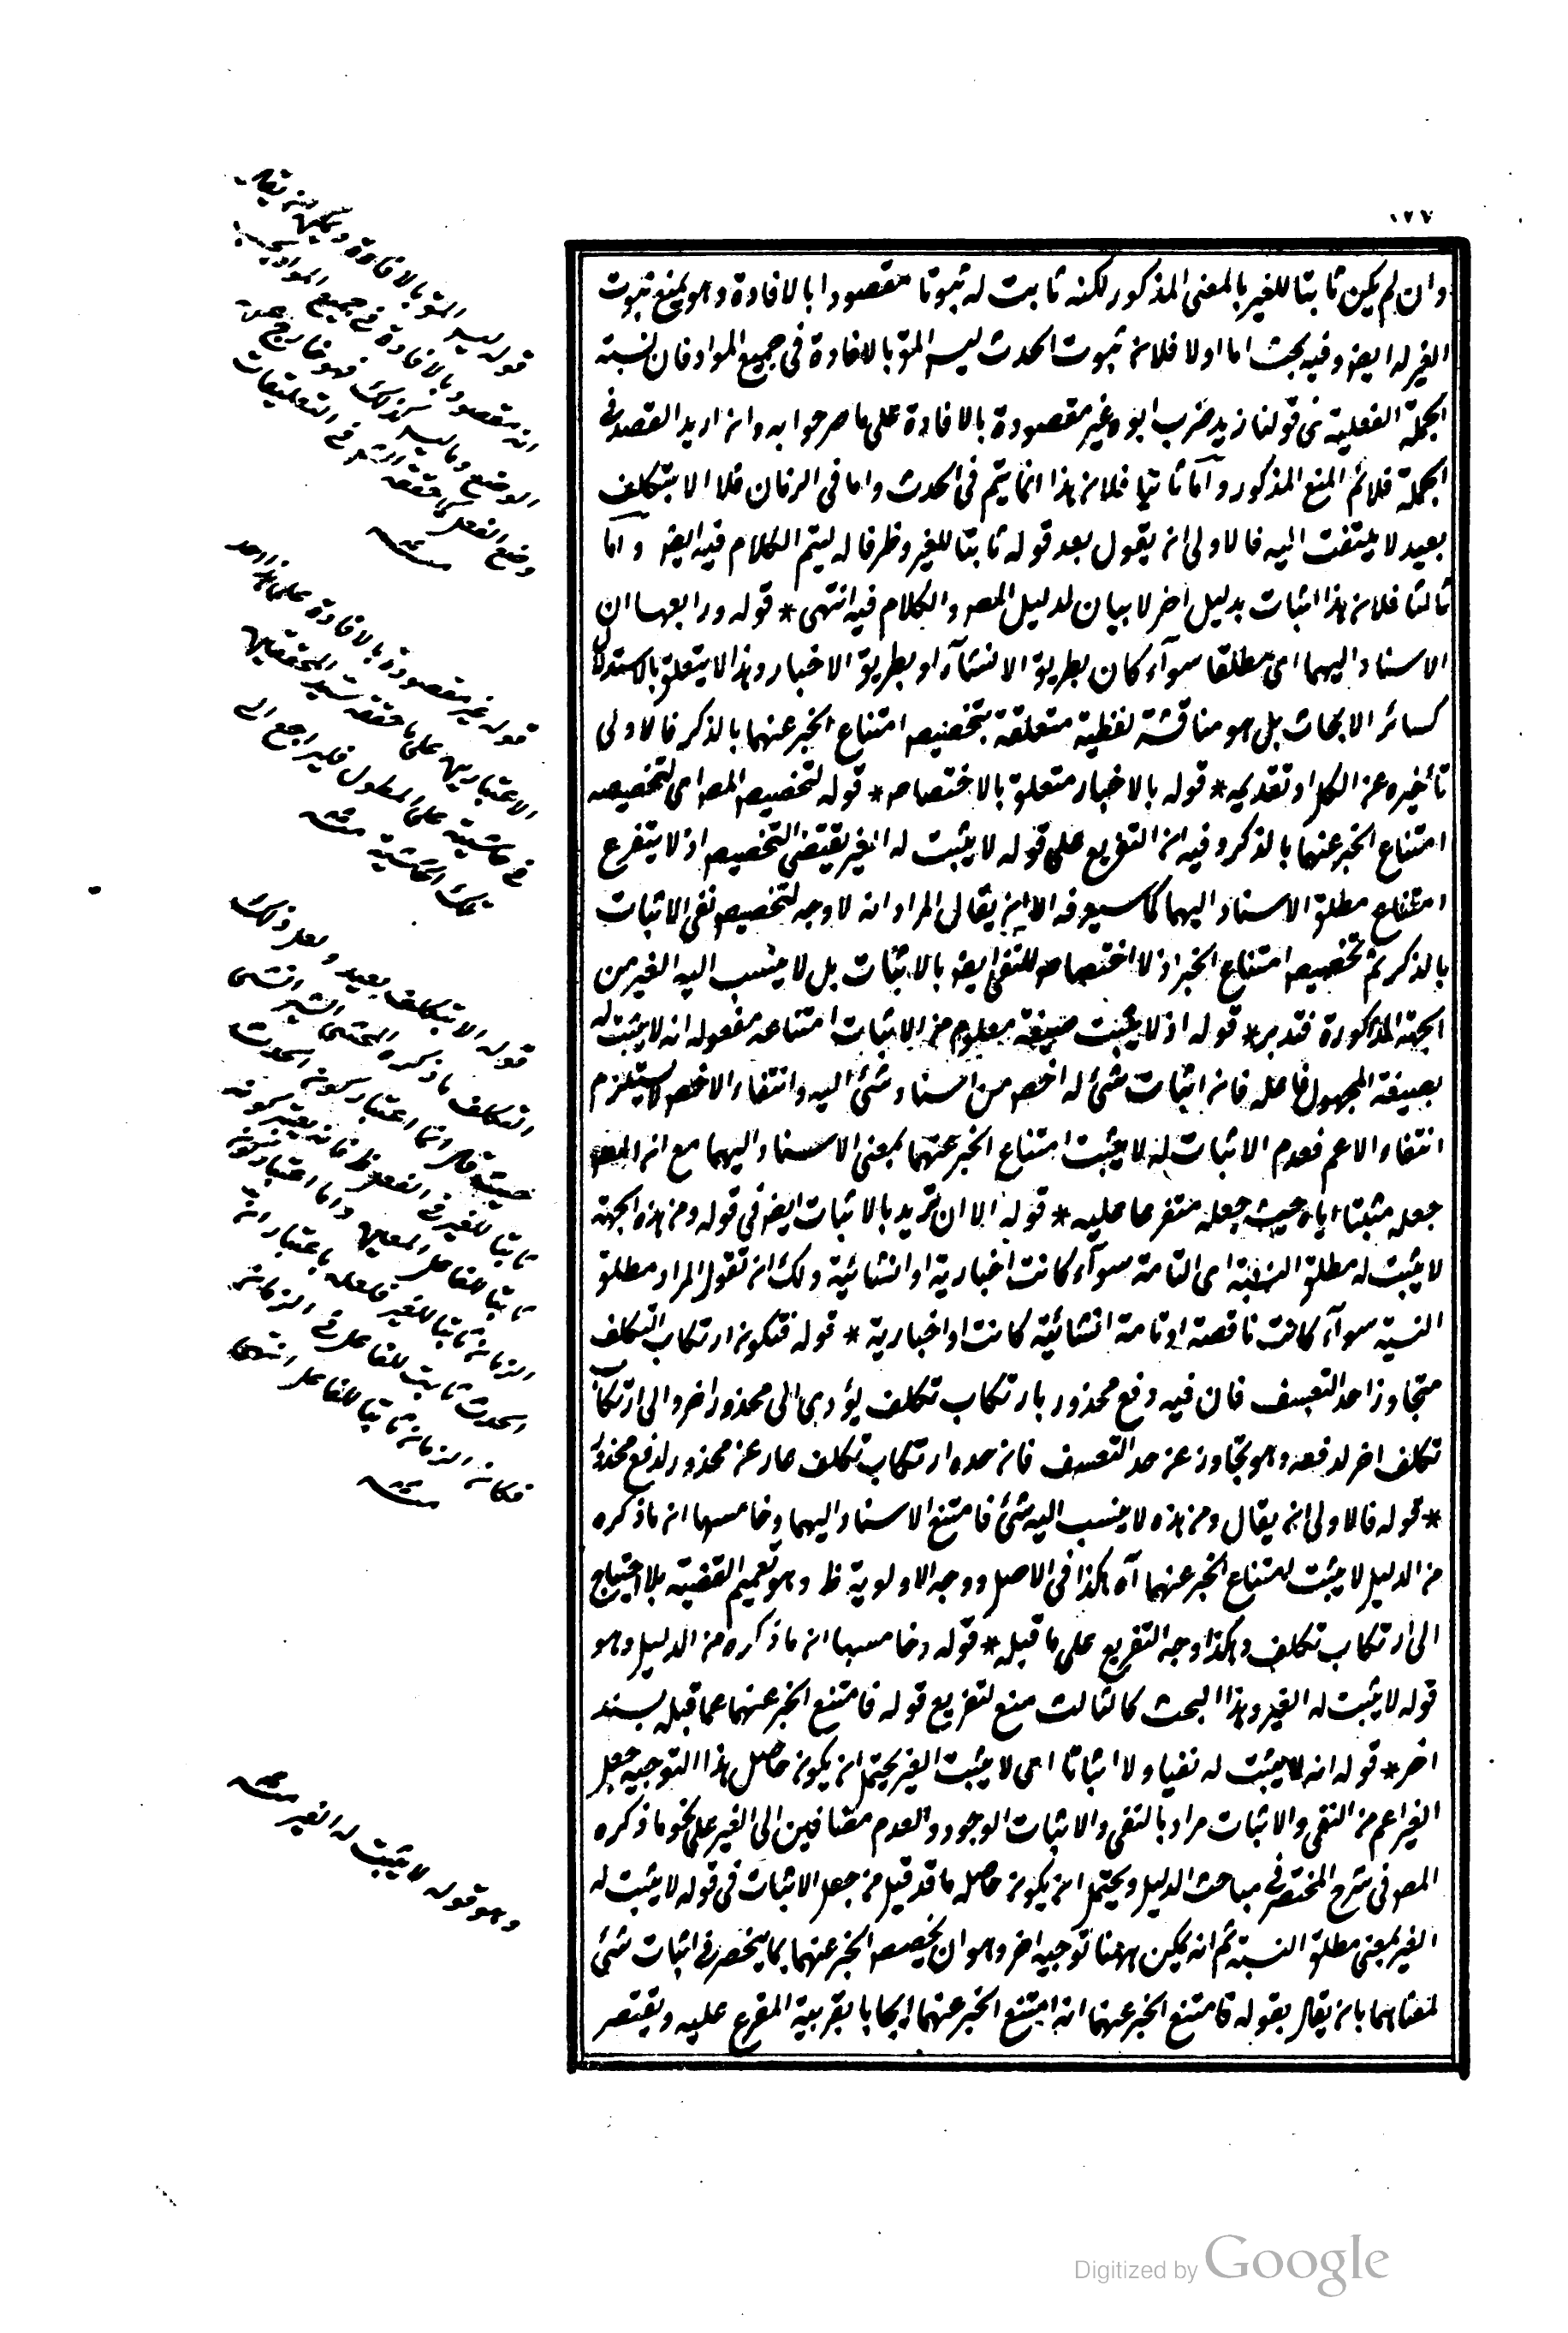 ١٧٧
وان لم يكن ثابتا للغير بالمعنى المذكور لكنه ثابت له ثبوتا مقصودا بالافادة وهو يمنع ثبوت
الغير له ايضا وفيه بحث اما اولا فلان ثبوت الحدث ليس المق بالافادة فى جميع المواد فان نسبة
الجملة الفعلية فى قولنا زيد ضرب ابوه غير مقصودة بالافادة على ما صرحوا به وان اريد القصد فى
الجملة فلا ثم المنع المذكور وآما ثانيا فلان هذا انما يتم فى الحدث واما فى الزمان فلا الا بتكلف
بعيد لا يلتفت اليه فالاولى ان يقول بعد قوله ثابتا للغير وظرفا له ليتم الكلام فيه ايضا وآما
ثالثا فلان هذا اثبات بدليل اخر لا بيان لدليل المص والكلام فيه انتهى * قوله ورابعها ان
الاسناد اليهما اى مطلقا سوآء كان بطريق الانشآء او بطريق الاخبار وهذا لا يتعلق بالاستدلال
كسائر الابحاث بل هو مناقشة لفظية متعلقة بتخصيص امتناع الخبر عنهما بالذكر فالاولى
تأخيره عن الكل او تقديمه * قوله بالاخبار متعلق بالاختصاص * قوله لتخصيص المص اى لتخصيصه
امتناع الخبر عنهما بالذكر وفيه ان التفريع على قوله لا يثبت له الغير يقتضى التخصيص اذ لا يتفرع
امتناع مطلق الاسناد اليهما كما سيعرفه الا ان يقال المراد انه لا وجه لتخصيص نفى الاثبات
بالذكر ثم تخصيص امتناع الخبر اذ لا اختصاص للنفى ايضا بالاثبات بل لا ينسب اليه الغير من
الجهة المذكورة فتدبر * قوله اذ لا يثبت صيغة معلوم من الاثبات امتناعه مفعوله انه لا يثبت له
بصيغة المجهول فاعله فان اثبات شئ له اخص من اسناد شئ اليه وانتفاء الاخص لا يستلزم
انتفاء الاعم فعدم الاثبات له لا يثبت امتناع الخبر عنهما بمعنى الاسناد اليهما مع ان المص
جعله مثبتا اياه حيث جعله متفرعا عليه * قوله الا ان تريد بالاثبات ايضا فى قوله ومن هذه الجهة
لا يثبت له مطلق النسبة اى التامة سوآء كانت اخبارية او انشائية ولك ان تقول المراد مطلق
النسبة سوآء كانت ناقصة او تامة انشائية كانت او اخبارية * قوله فتكون ارتكاب التكلف
متجاوزا حد التعسف فان فيه دفع محذور بارتكاب تكلف يؤدى الى محذور اخر والى ارتكاب
تكلف اخر لدفعه وهو تجاوز عن حد التعسف فان حده ارتكاب تكلف عار عن محذور لدفع محذور
* قوله فالاولى ان يقال ومن هذه لا ينسب اليه شئ فامتنع الاسناد اليهما وخامسها ان ما ذكره
من الدليل لا يثبت امتناع الخبر عنهما آه هكذا فى الاصل ووجه الاولوية ظ وهو تعميم القضية بلا احتياج
الى ارتكاب تكلف وهكذا وجه التفريع على ما قبله * قوله وخامسها ان ما ذكره من الدليل وهو
قوله لا يثبت له الغير وهذا البحث كالثالث منع لتفريع قوله فامتنع الخبر عنهما عما قبله بسند
اخر * قوله انه لا يثبت له نفيا ولا اثباتا اى لا يثبت الغير يحتمل ان يكون حاصل هذا التوجيه جعل
الغير اعم من النفى والاثبات مراد بالنفى والاثبات الوجود والعدم مضافين الى الغير على نحو ما ذكره
المص فى شرح المختصر فى مباحث الدليل ويحتمل ان يكون حاصله ما قد قيل من جعل الاثبات فى قوله لا يثبت له
الغير بمعنى مطلق النسبة ثم انه يمكن ههنا توجيه اخر وهو ان يخصص الخبر عنهما بما ينحصر فى اثبات شئ
لمعناهما بان يقال بقوله فامتنع الخبر عنهما انه امتنع الخبر عنهما ايجابا بقرينة المفرع عليه ويقتصر
قوله ليس المق بالافادة ويمكن ان يقال
انه مقصود بالافادة فى جميع المواد بحسب
الوضع وما ليس كذلك فهو خارج عن
وضع الفعل كما حققه الشر فى التعليقات
منه
قوله غير مقصودة بالافادة على احد
الاعتبارين على ما حققه سيد المحققين
فى حاشية على المطول فليراجع الى
تلك الحاشية منه
قوله الا بتكلف بعيد ولعل ذلك
التكلف ما ذكره المحشى الشير انسى
حيث قال انما اعتبار كون الحدث
ثابتا للغير فى الفعل ظ فانه يعتبر كونه
ثابتا للفاعل المعين واما اعتبار كون
الزمان ثابتا للغير فلعله باعتبار ان
الحدث ثابت للفاعل فى الزمان
فكان الزمان ثابتا للفاعل انتهى
منه
وهو قوله لا يثبت له الغير منه
Digitized by Google